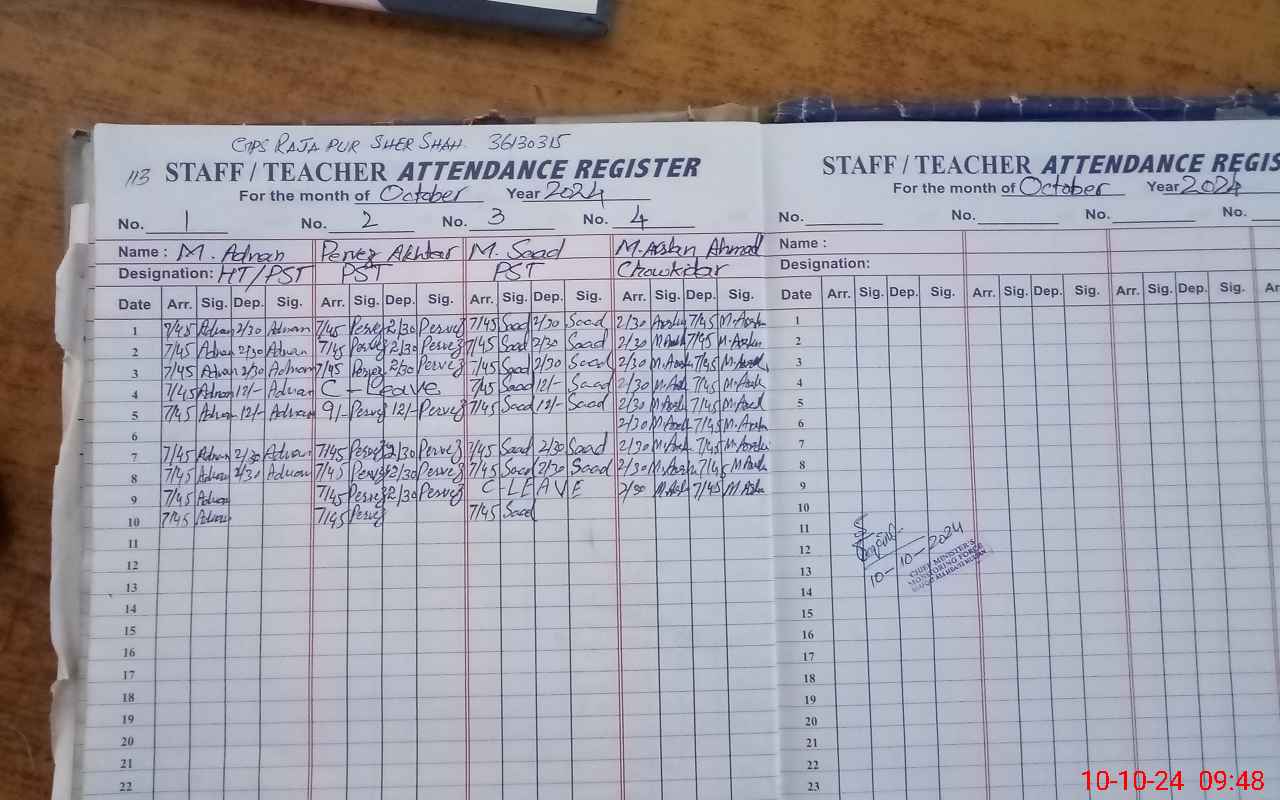 GPS RAJA PUR SHER SHAH. 36130315
113 STAFF / TEACHER ATTENDANCE REGISTER
For the month of October Year 2024
No. 1 No. 2 No. 3 No. 4
Name : M. Adnan Pervez Akhtar M. Saad M. Arslan Ahmad
Designation: HT/PST PST PST Chowkidar
Date Arr. Sig. Dep. Sig. Arr. Sig. Dep. Sig. Arr. Sig. Dep. Sig. Arr. Sig. Dep. Sig.
1 7/45 Adnan 2/30 Adnan 7/45 Pervez 2/30 Pervez 7/45 Saad 2/30 Saad 2/30 Arslan 7/45 M. Arslan
2 7/45 Adnan 2/30 Adnan 7/45 Pervez 2/30 Pervez 7/45 Saad 2/30 Saad 2/30 7/45 M. Arslan
3 7/45 Adnan 2/30 Adnan 7/45 Pervez 2/30 Pervez 7/45 Saad 2/30 Saad 2/30 7/45
4 7/45 Adnan 12/- Adnan C - Leave 7/45 Saad 12/- Saad 2/30 7/45
5 7/45 Adnan 12/- Adnan 9/- Pervez 12/- Pervez 7/45 Saad 12/- Saad 2/30 7/45
6 2/30 7/45
7 7/45 Adnan 2/30 Adnan 7/45 Pervez 2/30 Pervez 7/45 Saad 2/30 Saad 2/30 7/45
8 7/45 Adnan 2/30 Adnan 7/45 Pervez 2/30 Pervez 7/45 Saad 2/30 Saad 2/30 7/45
9 7/45 Adnan 7/45 Pervez 2/30 Pervez C-LEAVE 2/30 7/45
10 7/45 Adnan 7/45 Pervez 7/45 Saad
11
12
13
14
15
16
17
18
19
20
21
22
STAFF / TEACHER ATTENDANCE REGIS
For the month of October Year 2024
No. No. No. No.
Name :
Designation:
Date Arr. Sig. Dep. Sig. Arr. Sig. Dep. Sig. Arr. Sig. Dep. Sig. Ar
1
2
3
4
5
6
7
8
9
10
11
12
13
14
15
16
17
18
19
20
21
22
23
10-10-2024
CHIEF MINISTER'S
MONITORING FORCE
10-10-24 09:48